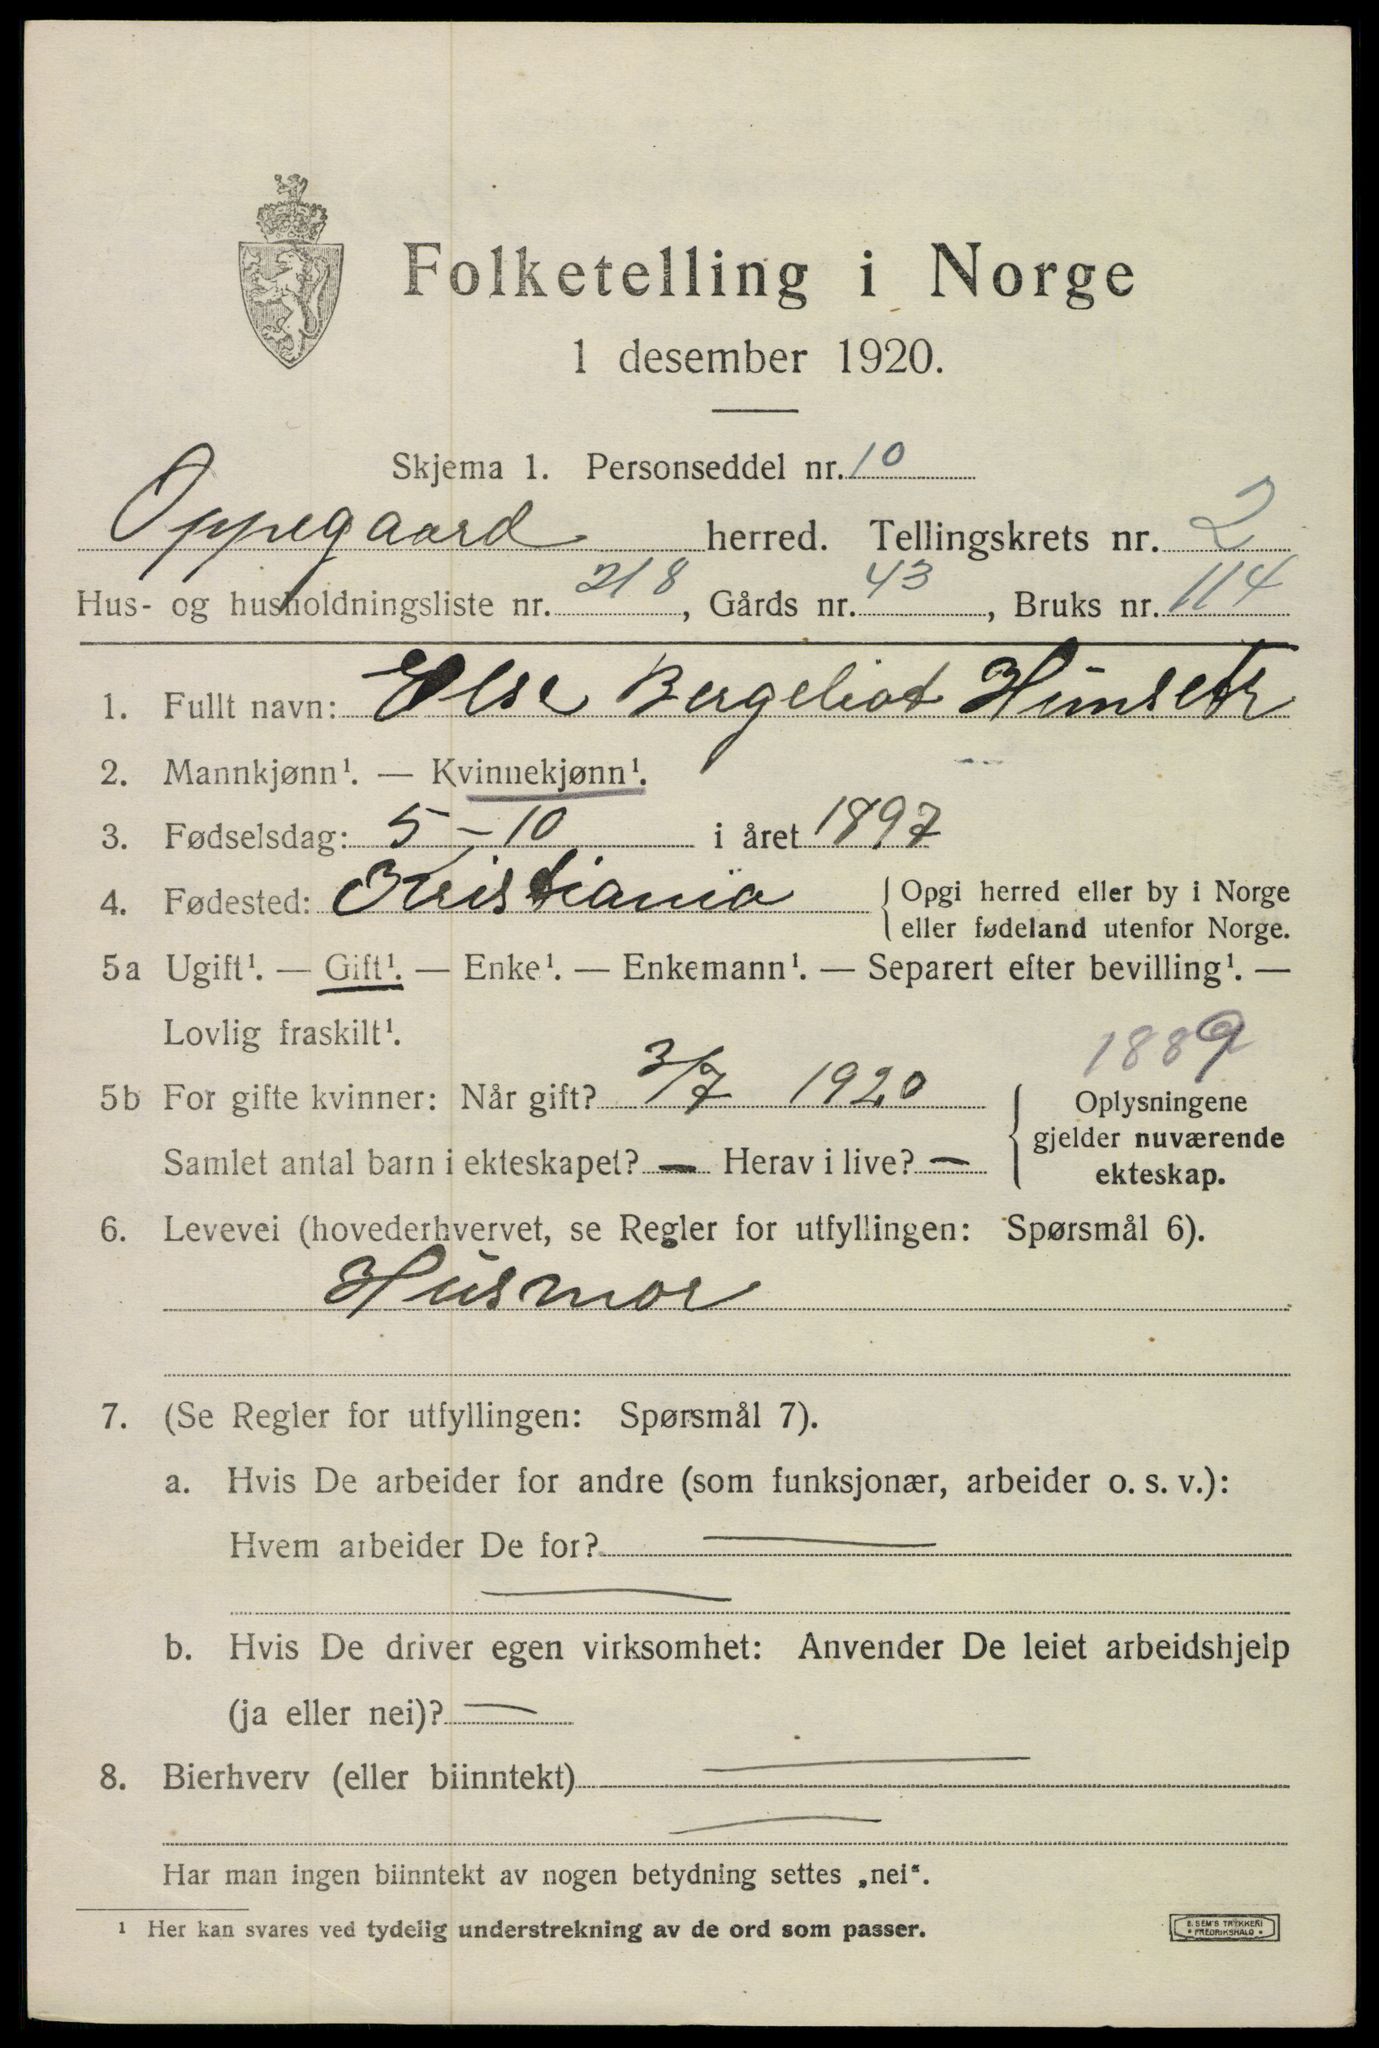 Folketelling i Norge
1 desember 1920.
Skjema 1. Personseddel nr. 10
Oppegaard herred. Tellingskrets nr. 2
Hus- og husholdningsliste nr. 218, Gårds nr. 43, Bruks nr. 114
1. Fullt navn: Else Bergeliot Hunsetr
2. Mannkjønn¹. — Kvinnekjønn¹.
3. Fødselsdag: 5-10 i året 1897
4. Fødested: Kristiania { Opgi herred eller by i Norge
eller fødeland utenfor Norge.
5a Ugift¹. — Gift¹. — Enke¹. — Enkemann¹. — Separert efter bevilling¹. —
Lovlig fraskilt¹.
1889
5b For gifte kvinner: Når gift? 3/7 1920
Samlet antal barn i ekteskapet? — Herav i live? —
Oplysningene
gjelder nuværende
ekteskap.
6. Levevei (hovederhvervet, se Regler for utfyllingen: Spørsmål 6).
Husmor
7. (Se Regler for utfyllingen: Spørsmål 7).
a. Hvis De arbeider for andre (som funksjonær, arbeider o. s. v.):
Hvem arbeider De for? —
—
b. Hvis De driver egen virksomhet: Anvender De leiet arbeidshjelp
(ja eller nei)? —
8. Bierhverv (eller biinntekt) —
—
Har man ingen biinntekt av nogen betydning settes „nei“.
¹ Her kan svares ved tydelig understrekning av de ord som passer.
E. SEM'S TRYKKERI
• FREDRIKSHALD •